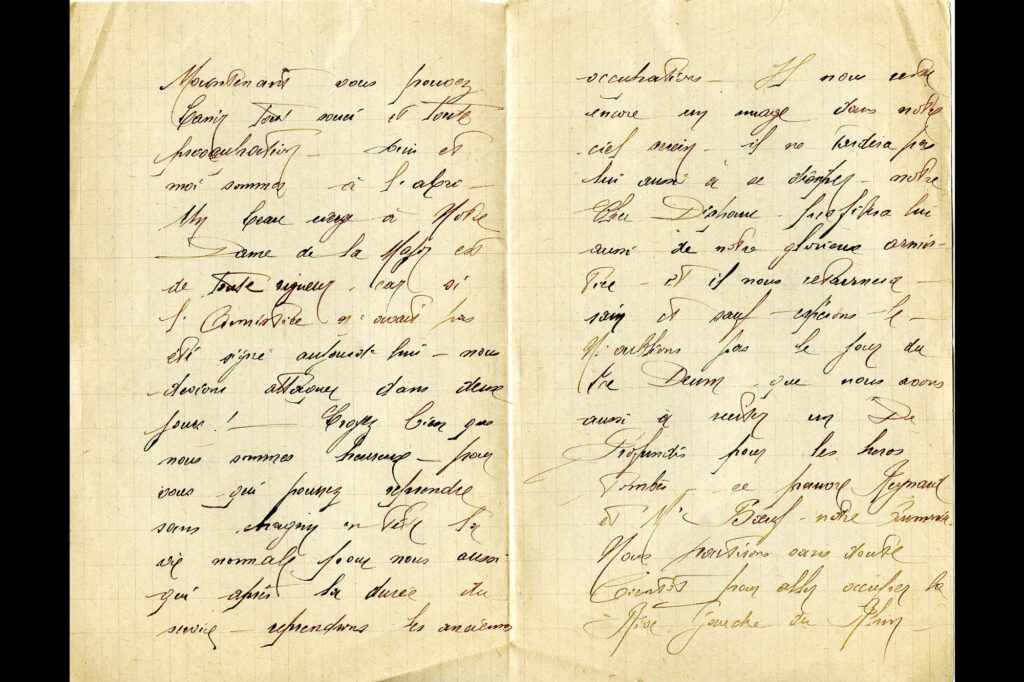 Maintenant vous pouvez
banir tout souci et toute
préocupation – Louis et
moi sommes – à l'abri –
Un beau cierge à Notre
Dame de la Major est
de toute rigueur, car si
l'Armistice n'avait pas
été signé aujourd'hui – nous
devions attaquer dans deux
jours! – Croyez bien que
nous sommes heureux – pour
vous – qui pourrez reprendre
sans chagrin en tête la
vie normale pour nous aussi
qui après la durée du
service – reprendrons les anciennes
occupations – Il nous reste
encore un nuage dans notre
ciel serein – il ne tardera pas
lui aussi à se – notre
Cher profitera lui
aussi de notre glorieux armis-
tice – et il nous retournera –
sain et sauf – espérons-le –
N'oublions pas le jour du
Te Deum, que nous avons
aussi à réciter un De
Profundis pour les heros
tombés – ce pauvre Reynaud
et Bœuf – notre
Nous partirons sans doute
bientôt pour aller occuper la
Rive Gauche du Rhin